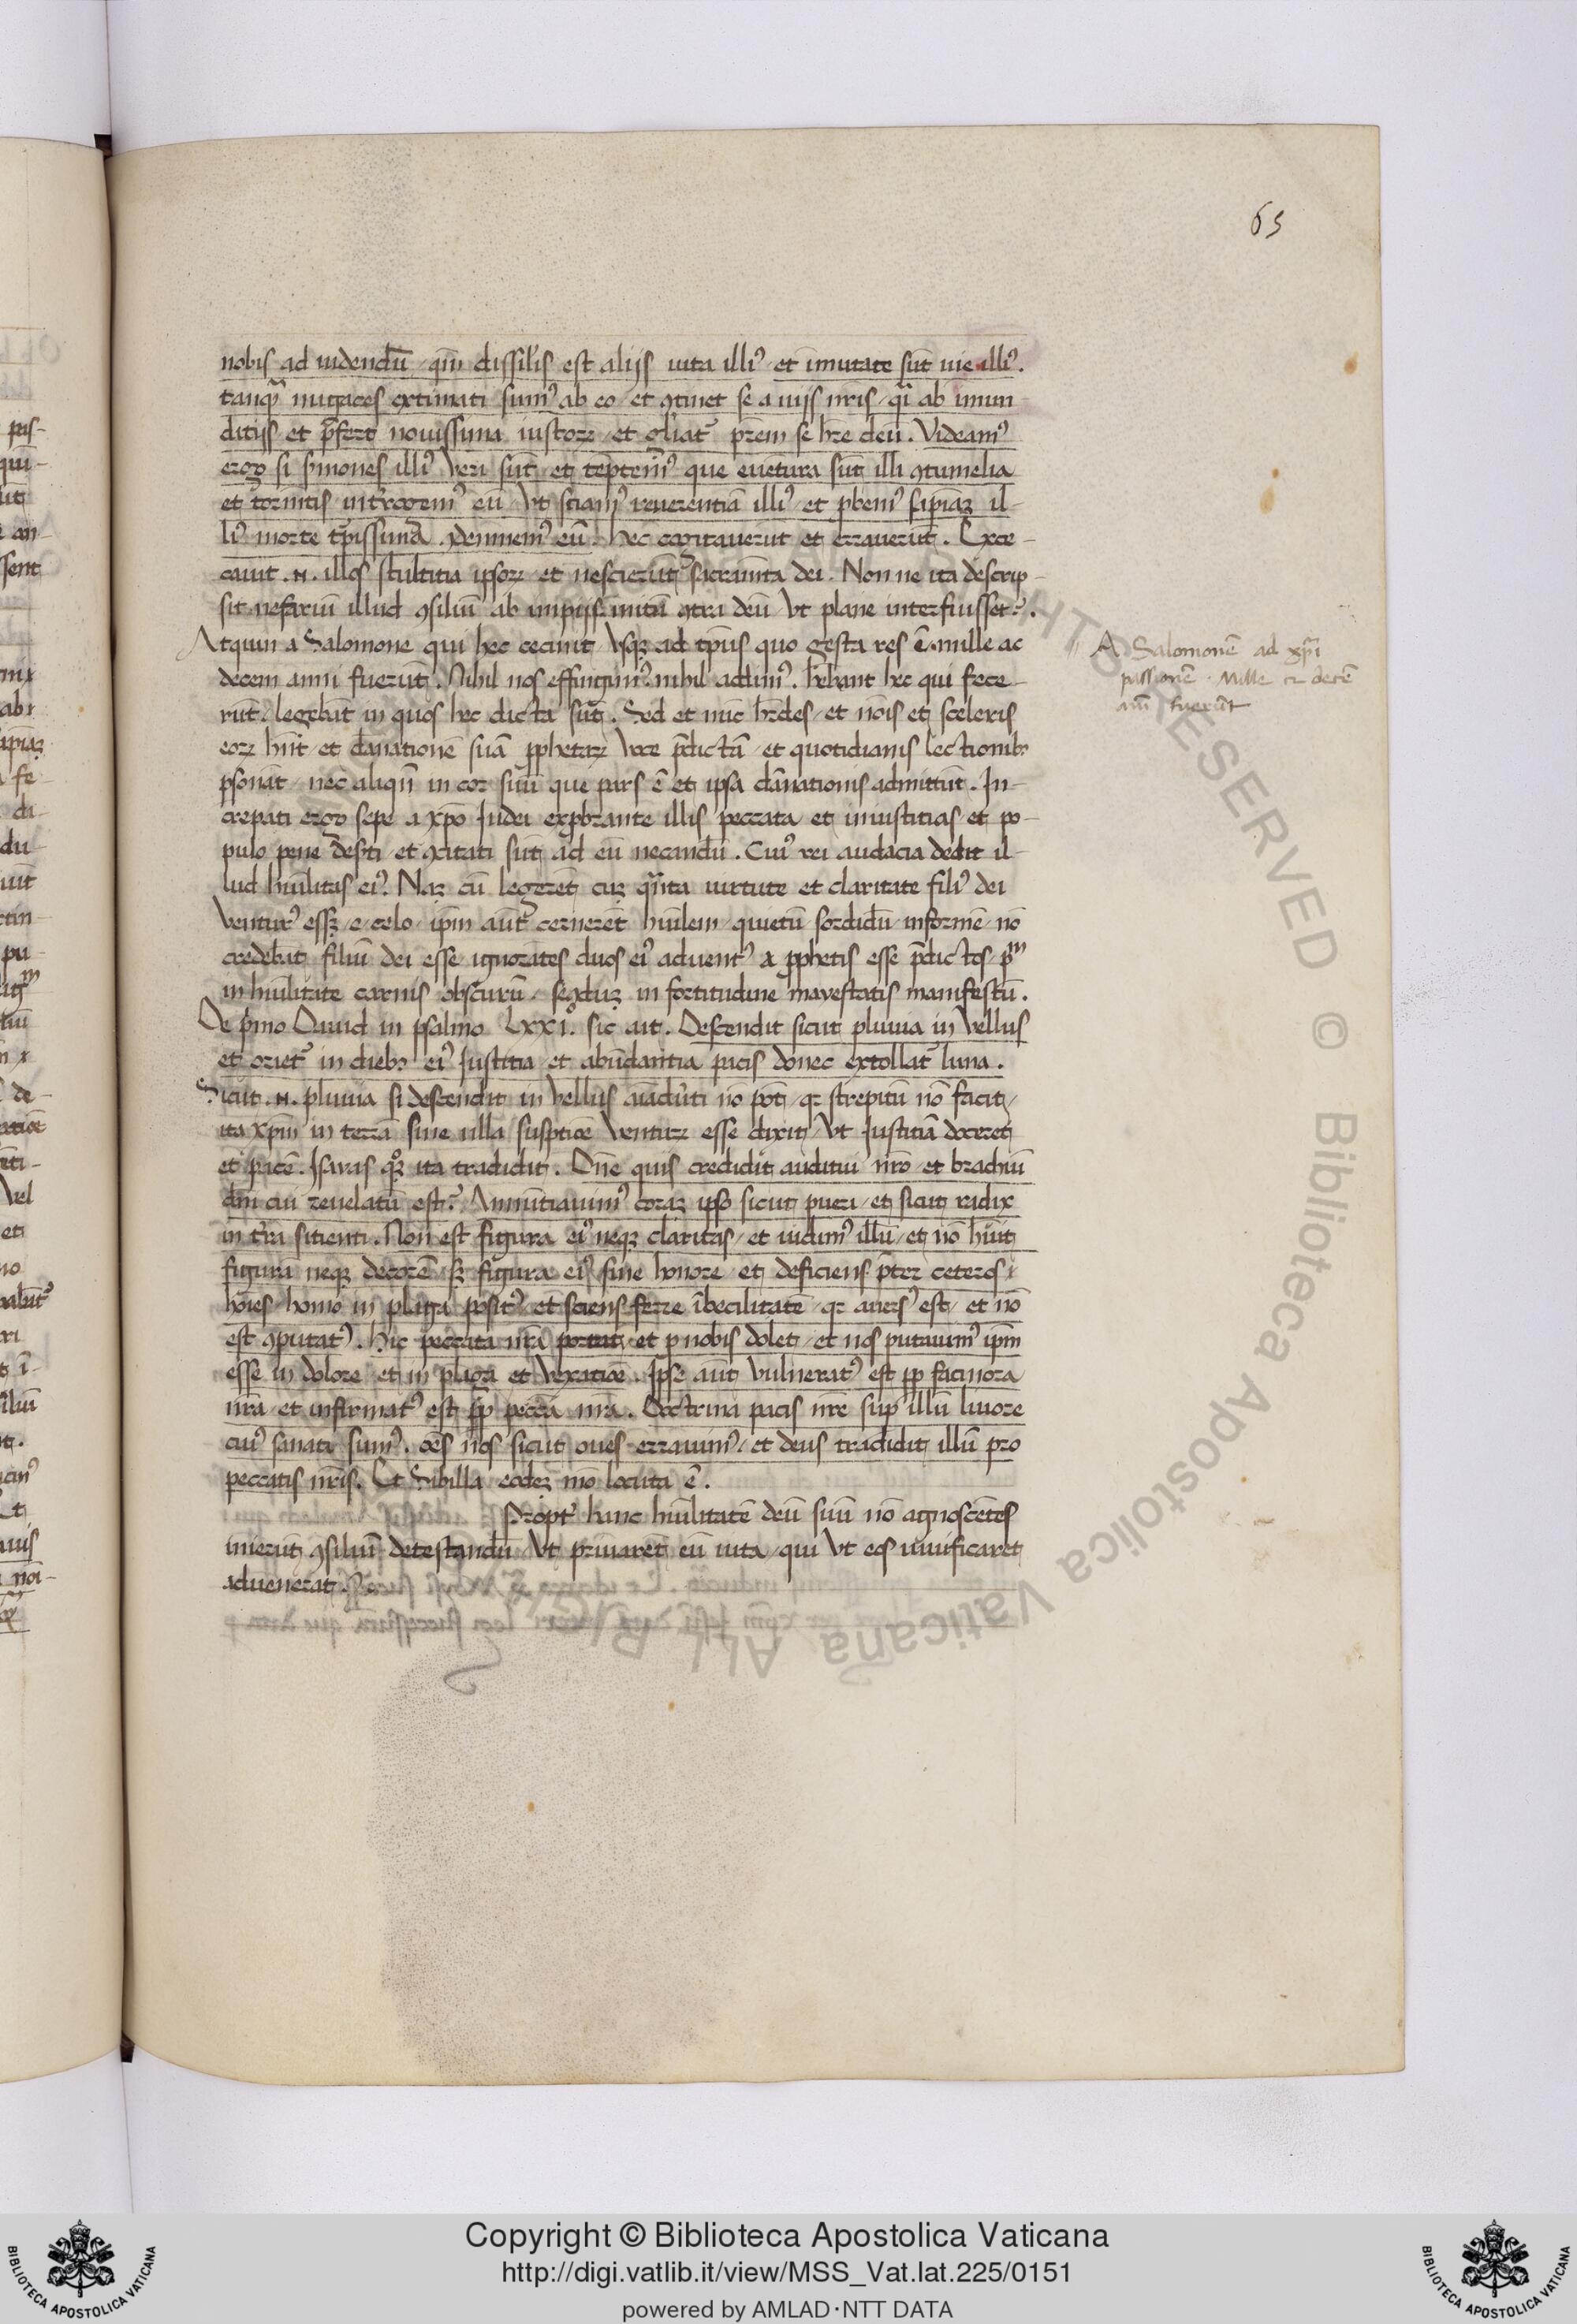 65
nobis ad uidendū / qm̄ dissił'is est alijs uita illi9 / et īmutate sūt uie illi9.
tanqȝ nugaces extimati sum9 ab eo / et 9tinet se a uijs nr̄is / qͣi ab inmun-
ditijs et p̄fert nouissima iustoꝝ / et gl̄iat᷑ pr̄em se hr̄e deū. Videam9
ergo si ẜmones illi9 veri sūt / et tēptem9 que euētura sūt illi 9tumelia
et torm̄tis int̄rogem9 eū / Vt sciam9 reuerentiā illi9 / et ꝓbem9 sapiāꝫ il-
li9 morte t᷑pissima 9demnem9 eū. hec cogitauerūt et errauerūt. Exce-
cauit .n. illos stultitia ipsoꝝ / et nescierūt sacram̄ta dei. Non ne ita descrip-
sit nefariū illud 9siliū ab impijs initū 9tra deū Vt plane interfuisset?.
Atquin a Salomone qui hec cecinit Vsqꝫ ad tp̄us quo gesta res ē. mille ac
decem anni fuerūt. Nihil nos effingim9. nihil addim9. hēbant hec qui fece-
rūt. legebāt in quos hec dicta sūt. Sed et nūc hr̄des / et nōis et sceleris
eoꝝ hn̄t / et dānationē suā ꝓphetaꝝ voce p̄dictā / et quotidianis lectionibꝫ
ꝑsonāt / nec aliqn̄ in cor suū que pars ē et ipsa dānationis admittūt. In-
crepati ergo sepe a xp̄o Iudei exꝓbrante illis peccata et iniustitias et po-
pulo pene deẜti / et 9citati sūt ad eū necandū. Cui9 rei audacia dedit il-
lud hūilitas ei9. Naꝫ cū legerēt cuꝫ qͣnta uirtute et claritate fili9 dei
ventur9 essꝫ / e / celo / ip̄m aūt cernerēt hūilem / quietū sordidū / informē / nō
credebāt filiū dei esse ignorātes duos ei9 aduent9 a ꝓphetis esse p̄dictos pͥm
in hūilitate carnis obscurū / sec̄duꝫ in fortitudine mayestatis manifestū.
De pͥmo Dauid in psalmo LXXIº. sic ait. Descendit sicut pluuia in Vellus
et oriet᷑ in diebꝫ ei9 Iustitia / et abūdantia pacis donec extollat᷑ luna.
Sicut .n. pluuia si descendit in Vellus auādiri nō pōt / qꝛ strepitū nō facit /
ita xp̄m in terrā sine ulla susptiōe Venturꝫ esse dixit / Vt Iustitiā doceret
et pacē. Isayas qͦꝫ ita tradidit. Dn̄e quis credidit auditui nr̄o / et brachiū
dn̄i cui reuelatū est? Annūtiauim9 coraꝫ ipso sicut pueri / et sicut radix
in t̄ra sitienti. Non est figura ei9 neqꝫ claritas / et uidim9 illū / et nō hūit
figurā neqꝫ decorē / sꝫ figura ei9 sine honore / et deficiens p̄ter ceteros
hōies / homo in plaga posit9 / et sciens ferre ībecilitatē / qꝛ auers9 est / et nō
est 9putat9. Hic peccata nr̄a portat / et ꝓ nobis dolet / et nos putauim9 ip̄m
esse in dolore / et in plaga et Vexatiōe. Ipse aūt Vulnerat9 est ꝓp facinora
nr̄a / et infirmat9 est ꝓp pecc̄a nr̄a. Doctrina pacis nr̄e sup illū liuore
cui9 sanati sum9. oēs nos sicut oues errauim9 / et deus tradidit illū pro
peccatis nr̄is. Et Sibilla eodeꝫ mō locuta ē.
Propt᷑ hanc hūilitatē deū suū nō agnoscētes
inierūt 9siliū detestandū Vt priuarēt eū uita / qui Vt eos uiuificaret
aduenerat.
A Salomonē ad xp̄i
passionē . Mille et decē
anī fuerūt
Copyright © Biblioteca Apostolica Vaticana
http://digi.vatlib.it/view/MSS_Vat.lat.225/0151
powered by AMLAD·NTT DATA